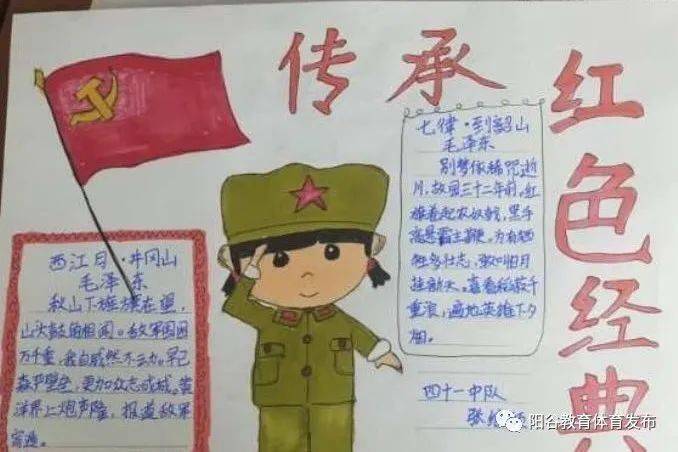 传承
红色经典
七律·到韶山
毛泽东
别梦依稀咒逝
川,故园三十二年前。红
旗卷起农奴戟,黑手
高悬霸主鞭。为有牺
牲多壮志,敢叫日月
换新天。喜看稻菽千
重浪,遍地英雄下夕
烟。
西江月·井冈山
毛泽东
秋山下旌旗在望,
山头鼓角相闻。敌军围困
万千重,我自岿然不动。早已
森严壁垒,更加众志成城。黄
洋界上炮声隆,报道敌军
宵遁。
四十一中队
张
阳谷教育体育发布